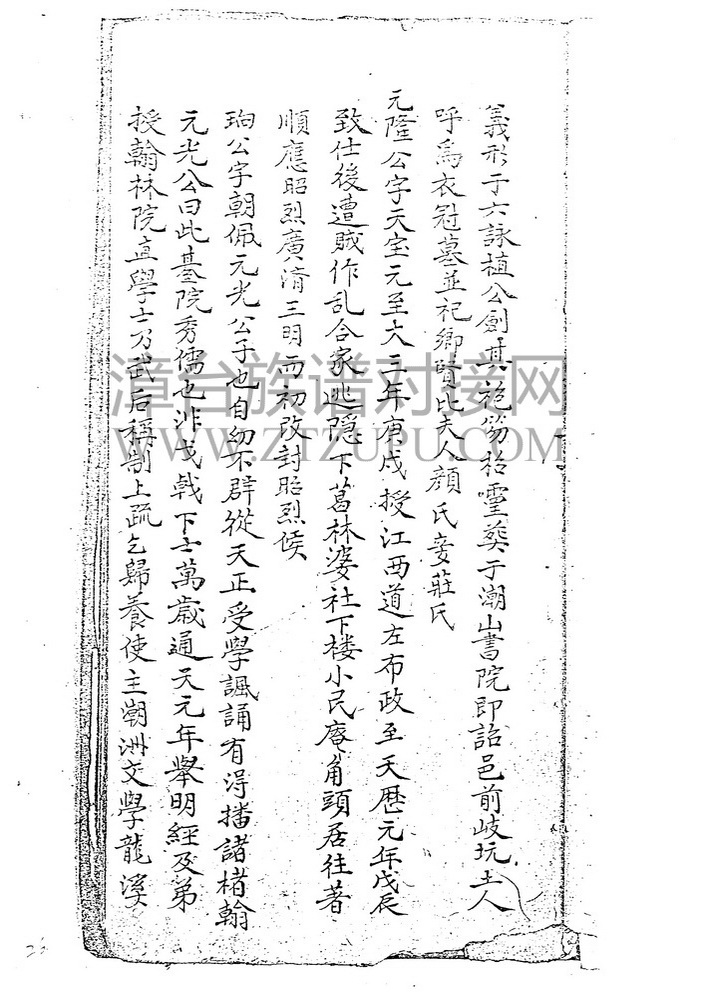 義形于六詠植公劍其袍笏招靈葬于潮山書院即詔邑前岐坑土人
呼為衣冠墓並祀鄉賢比夫人顏氏妾莊氏
元隆公字天宝元至大三年庚戌授江西道左布政至天歷元年戊辰
致仕後遭賊作乱合家逃隱下葛林婆社下楼小民庵角頭居往著
順應昭烈廣濟三明而初改封昭烈侯
珦公字朝佩元光公子也自幼不群從天正受學諷誦有得播諸楮翰
元光公曰此臺院秀儒也非戈戟下士萬歲通天元年舉明經及第
授翰林院直學士乃武后稱制上疏乞歸養使主潮洲文學龍溪
漳台族谱对接网
WWW.ZTZUPU.COM